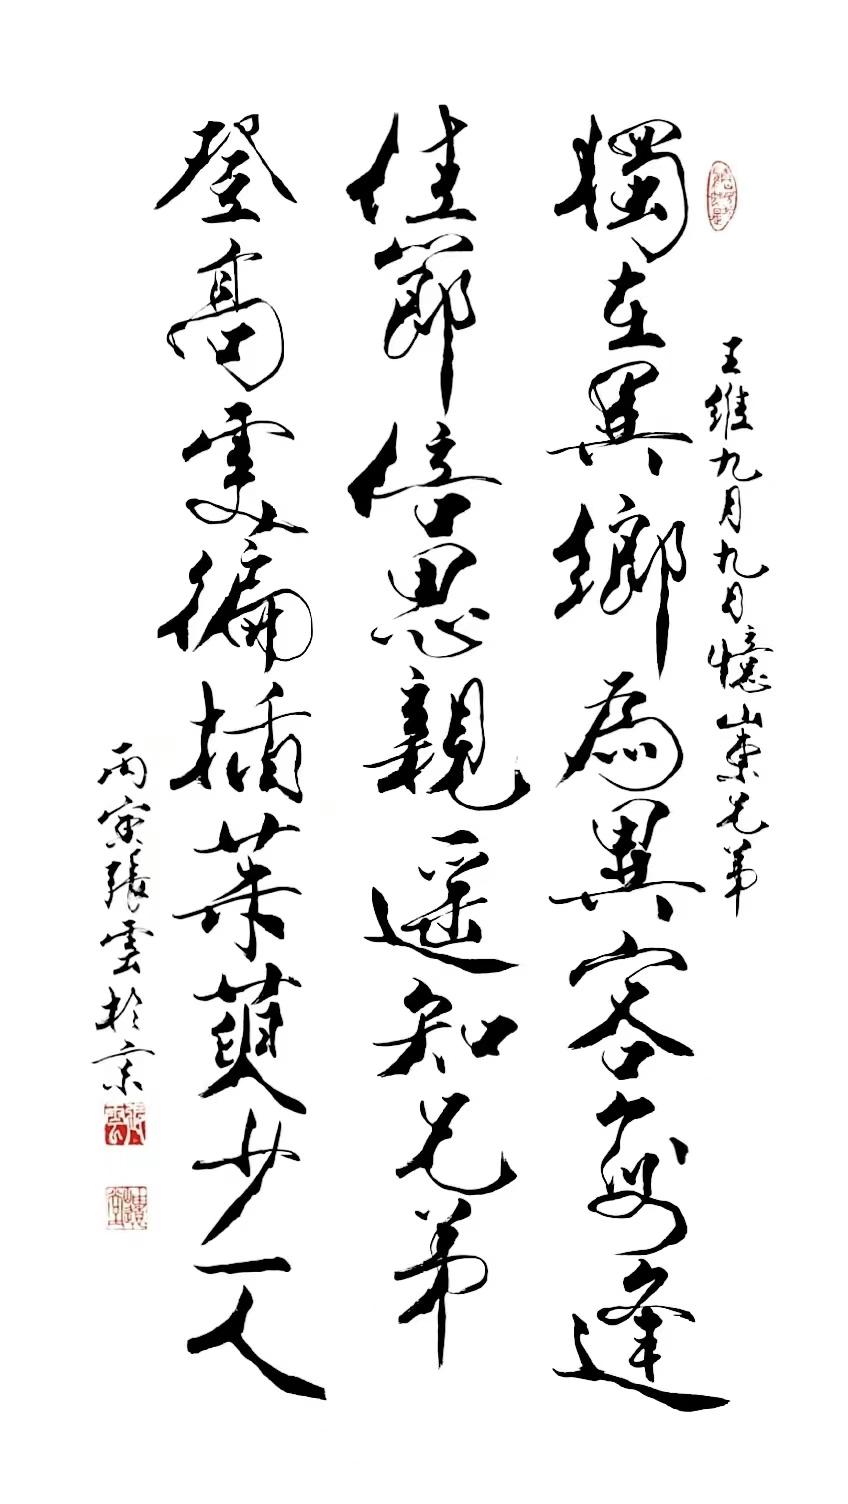 王維九月九日憶山東兄弟
獨在異鄉為異客每逢
佳節倍思親遥知兄弟
登高處徧插茱萸少一人
丙寅張雲於京
張雲